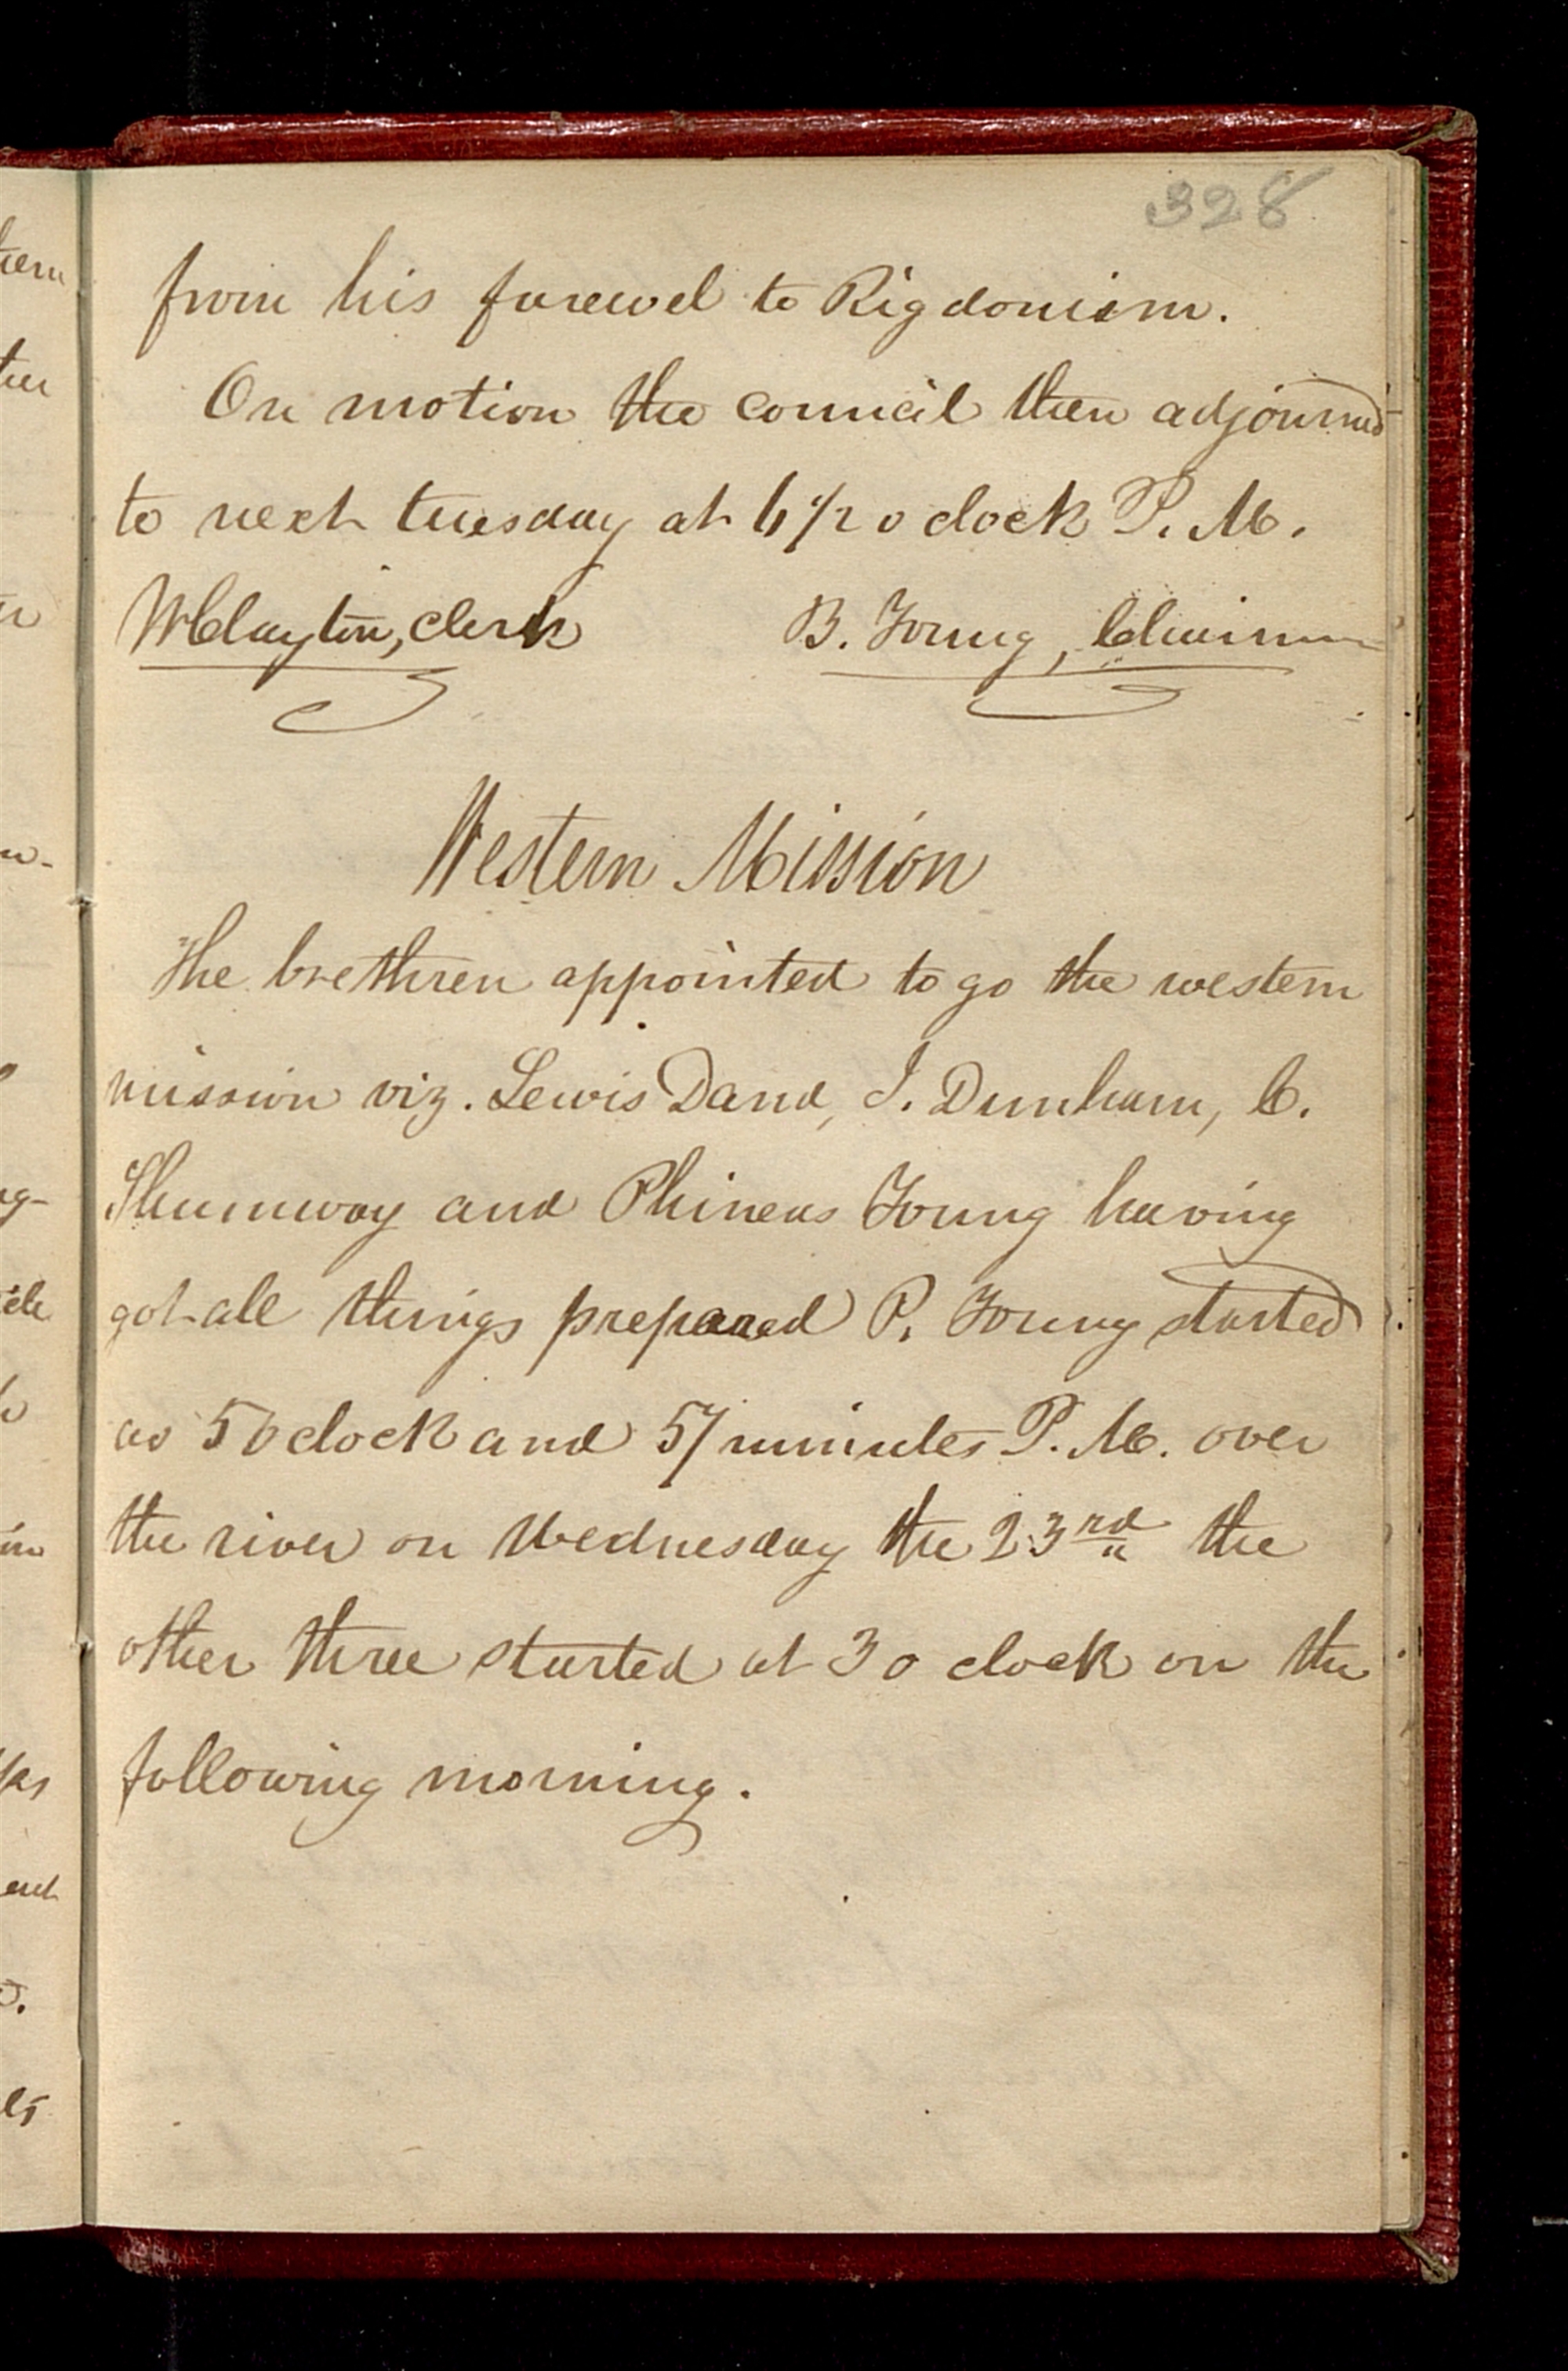 328
from his farewel to Rigdonism.
On motion the council then adjourned
to next tuesday at 6 1/2 o clock P. M.
W Clayton, Clerk B. Young, Chairman
Western Mission
The brethren appointed to go the western
mission viz. Lewis Dand, J. Dunham, C.
Shumway and Phineas Young having
got all things prepared P. Young started
as 5 o clock and 57 minutes P. M. over
the river on Wednesday the 23rd the
other three started at 3 o clock on the
following morning.